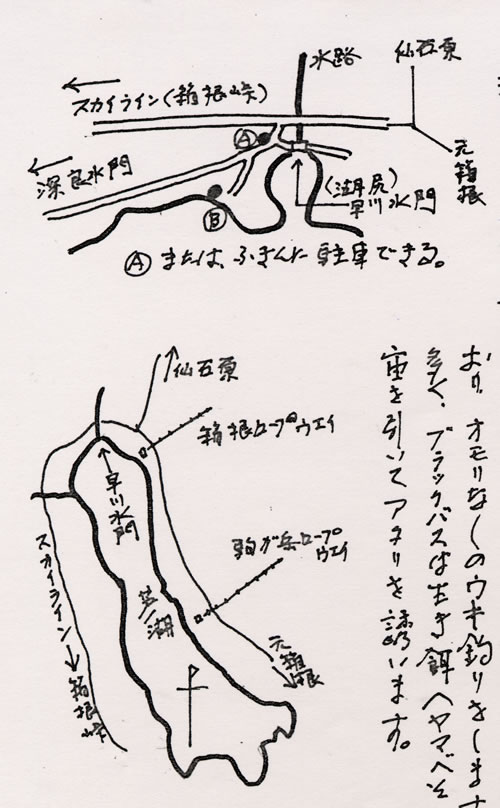 水路
仙石原
スカイライン(箱根峠)
Ⓐ
元箱根
深良水門
(湖尻)
早川水門
Ⓑ
Ⓐ または、ふきんに駐車できる。
仙石原
箱根ロープウエイ
早川水門
駒ガ岳ロープ
ウエイ
スカイライン
箱根峠
芦ノ湖
元箱根
おり、オモリなしのウキ釣りをします
多く、ブラックバスは生き餌(ヤマベ、
宙を引いてアタリを誘います。